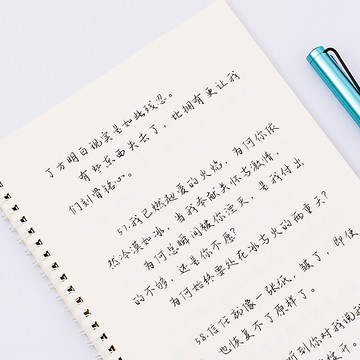 了方明白现实是如此残忍。
有些东西失去了，比拥有更让我
们刻骨铭心。
57.我已燃起爱的火焰，为何你依
然冷漠如冰，当我奉献关怀与激情，
为何总瞬间被你湮灭，是我付出
的不够，还是你不愿？
为何始终要处在冰与火的两重天？
58.信任就像一张纸，皱了，即使
也恢复不了原样了。
到你对我说